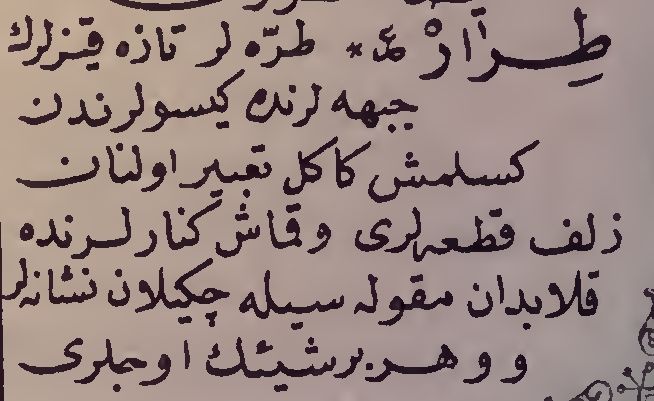 طِرَارْ * طرّه لر تازه قیزلرك
جبهه لرنده کیسولرندن
کسلمش کاکل تعبیر اولنان
زلف قطعه لری و قماش کنارلرنده
قلابدان مقوله سیله چکیلان نشانه لر
و و هر بر شیئك اوجلری